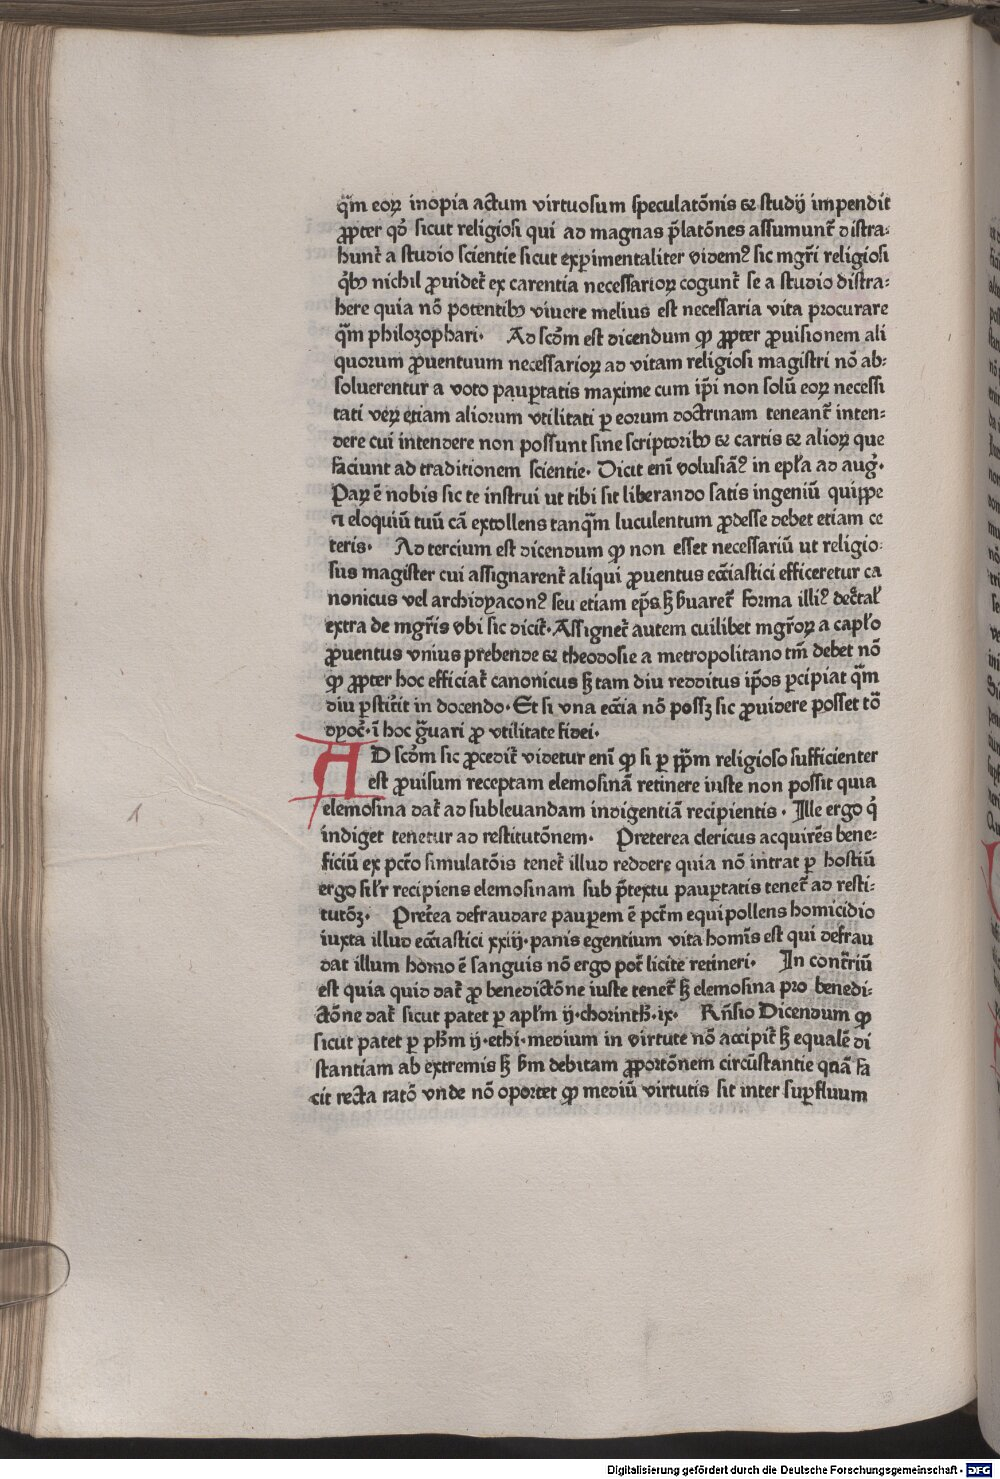 q̄m eoꝝ inopia actum virtuosum speculatōnis ⁊ studij impendit
ꝓpter qđ sicut religiosi qui ad magnas p̄latōnes assumunt᷑ distra⸗
hunt᷑ a studio scientie sicut exꝑimentaliter videmꝰ sic mgr̄i religiosi
qͥbꝫ nichil ꝓuidet᷑ ex carentia necessarioꝝ cogunt᷑ se a studio distra⸗
here quia nō potentibꝫ viuere melius est necessaria vita procurare
q̄m philozophari. Ad scd̄m est dicendum ꝙ ꝓpter ꝓuisionem ali
quorum ꝓuentuum necessarioꝝ ad vitam religiosi magistri nō ab⸗
soluerentur a voto pauꝑtatis maxime cum ip̄i non solū eoꝝ necessi
tati veꝝ etiam aliorum vtilitati ꝑ eorum doctrinam teneant᷑ inten⸗
dere cui intendere non possunt sine scriptoribꝫ ⁊ cartis ⁊ alioꝝ que
faciunt ad traditionem scientie. Dicit enī volusiāꝰ in epl̄a ad augꝰ.
Paꝝ ē nobis sic te instrui ut tibi sit liberando satis ingeniū quippe
⁊ eloquiū tuū cā extollens tanq̄m luculentum ꝓdesse debet etiam ce
teris. Ad tercium est dicendum ꝙ non esset necessariū ut religio⸗
sus magister cui assignarent᷑ aliqui ꝓuentus ecc̄iastici efficeretur ca
nonicus vel archidyaconꝰ seu etiam ep̄s ꝫ ẜuaret᷑ forma illiꝰ dect̄al̕
extra de mgr̄is vbi sic dicit᷑. Assignet᷑ autem cuilibet mgr̄oꝝ a capl̄o
ꝓuentus vnius prebende ⁊ theodosie a metropolitano tm̄ debet nō
ꝙ ꝓpter hoc efficiat᷑ canonicus ꝫ tam diu redditus ip̄os ꝑcipiat q̄m
diu ꝑstit̕it in docendo. Et si vna ecc̄ia nō possꝫ sic ꝓuidere posset tō
dyoc̄. ī hoc gͣuari ꝓ vtilitate fidei.
AD scd̄m sic ꝓcedit᷑ videtur enī ꝙ si ꝑ pp̄m religioso sufficienter
est ꝓuisum receptam elemosinā retinere iuste non possit quia
elemosina dat᷑ ad subleuandam indigentiā recipientis. Ille ergo qͥ
indiget tenetur ad restitutōnem. Preterea clericus acquirēs bene⸗
ficiū ex pctō simulatōis tenet᷑ illud reddere quia nō intrat ꝑ hostiū
ergo sil̕r recipiens elemosinam sub p̄textu pauꝑtatis tenet᷑ ad resti⸗
tutōꝫ. Pret᷑ea defraudare pauꝑem ē pctm̄ equipollens homicidio
iuxta illud ecc̄iastici xxiij. panis egentium vita homīs est qui defrau
dat illum homo ē sanguis nō ergo pōt licite retineri. In cont̄riū
est quia quid dat᷑ ꝓ benedictōne iuste tenet᷑ ꝫ elemosina pro benedi⸗
ctōne dat᷑ sicut patet ꝑ apl̄m ij. chorinth̄. ix. Rn̄sio Dicendum ꝙ
sicut patet ꝑ ph̄m ij. ethi. medium in virtute nō accipit᷑ ꝫ equalē di
stantiam ab extremis ꝫ ẜm debitam ꝓportōnem circūstantie quā fa
cit recta ratō vnde nō oportet ꝙ mediū virtutis sit inter suꝑfluum
1
Digitalisierung gefördert durch die Deutsche Forschungsgemeinschaft - DFG